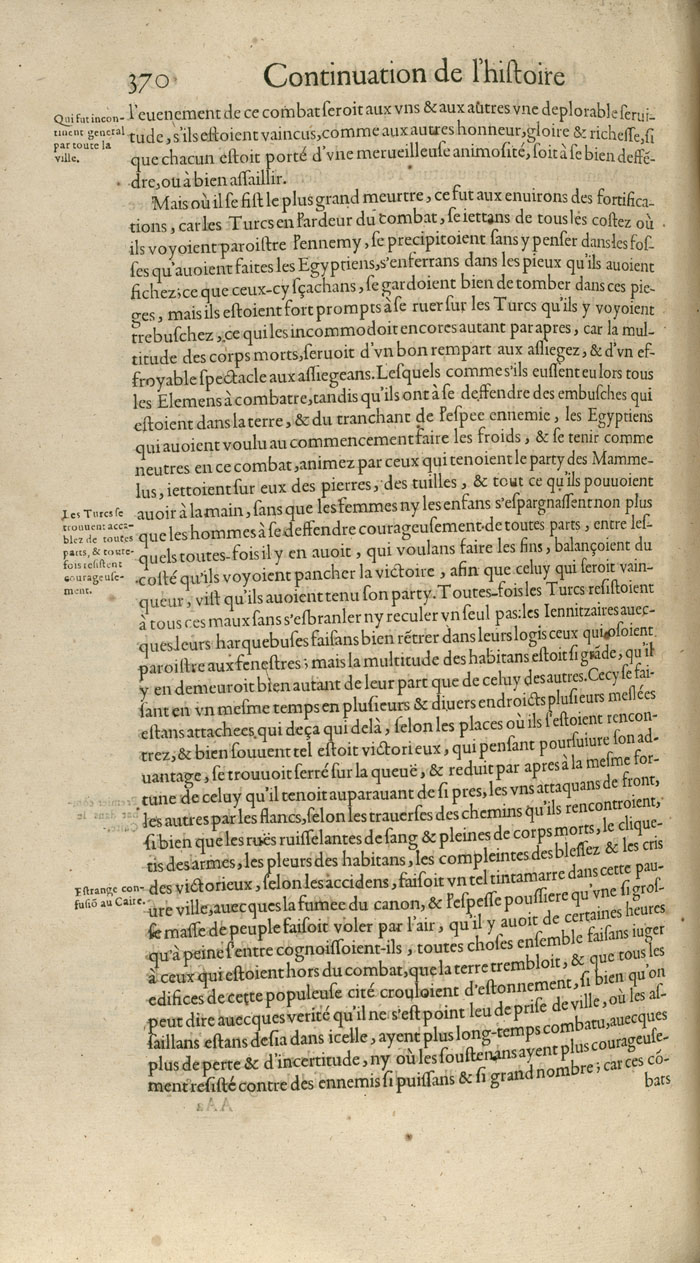 370 Continuation de l'hiſtoire
Qui fut incon-
tinent general
par toute la
ville.
l'euenement de ce combat ſeroit aux vns & aux aûtres vne deplorable ſerui-
tude, s'ils eſtoient vaincus, comme aux autres honneur, gloire & richeſſe, ſi
que chacun eſtoit porté d'vne merueilleuſe animoſité, ſoit à ſe bien deffē-
dre, ou à bien aſſaillir.
Mais où il ſe fiſt le plus grand meurtre, ce fut aux enuirons des fortifica-
tions, car les Turcs en l'ardeur du combat, ſe iettans de tous les coſtez où
ils voyoient paroiſtre l'ennemy, ſe precipitoient ſans y penſer dans les foſ-
ſes qu'auoient faites les Egyptiens, s'enferrans dans les pieux qu'ils auoient
fichez; ce que ceux-cy ſçachans, ſe gardoient bien de tomber dans ces pie-
ges, mais ils eſtoient fort prompts à ſe ruer ſur les Turcs qu'ils y voyoient
trebuſchez, ce qui les incommodoit encores autant par apres, car la mul-
titude des corps morts, ſeruoit d'vn bon rempart aux aſſiegez, & d'vn ef-
froyable ſpectacle aux aſſiegeans. Leſquels comme s'ils euſſent eu lors tous
les Elemens à combatre, tandis qu'ils ont à ſe deffendre des embuſches qui
eſtoient dans la terre, & du tranchant de l'eſpee ennemie, les Egyptiens
qui auoient voulu au commencement faire les froids, & ſe tenir comme
neutres en ce combat, animez par ceux qui tenoient le party des Mamme-
lus, iettoient ſur eux des pierres, des tuilles, & tout ce qu'ils pouuoient
auoir à la main, ſans que les femmes ny les enfans s'eſpargnaſſent non plus
Les Turcs ſe
trouuent acca-
blez de toutes
parts, & toute-
fois reſiſtent
courageuſe-
ment.
que les hommes à ſe deffendre courageuſement de toutes parts, entre leſ-
quels toutes-fois il y en auoit, qui voulans faire les fins, balançoient du
coſté qu'ils voyoient pancher la victoire, afin que celuy qui ſeroit vain-
queur, viſt qu'ils auoient tenu ſon party. Toutes-fois les Turcs reſiſtoient
à tous ces maux ſans s'eſbranler ny reculer vn ſeul pas: les Iennitzaires auec-
ques leurs harquebuſes faiſans bien rētrer dans leurs logis ceux qui oſoient
paroiſtre aux feneſtres; mais la multitude des habitans eſtoit ſi grāde, qu'il
y en demeuroit bien autant de leur part que de celuy des autres. Cecy ſe fai-
ſant en vn meſme temps en pluſieurs & diuers endroicts pluſieurs meſlées
eſtans attachees, qui deça qui delà, ſelon les places où ils s'eſtoient rencon-
trez, & bien ſouuent tel eſtoit victorieux, qui penſant pourſuiure ſon ad-
uantage, ſe trouuoit ſerré ſur la queuë, & reduit par apres à la meſme for-
tune de celuy qu'il tenoit auparauant de ſi pres, les vns attaquans de front,
les autres par les flancs, ſelon les trauerſes des chemins qu'ils rencontroient,
ſi bien que les ruës ruiſſelantes de ſang & pleines de corps morts, le clique-
tis des armes, les pleurs des habitans, les compleintes des bleſſez & les cris
Eſtrange con-
fuſiō au Caire.
des victorieux, ſelon les accidens, faiſoit vn tel tintamarre dans cette pau-
ure ville, auecques la fumee du canon, & l'eſpeſſe pouſſiere qu'vne ſi groſ-
ſe maſſe de peuple faiſoit voler par l'air, qu'il y auoit de certaines heures
qu'à peine s'entre cognoiſſoient-ils, toutes choſes enſemble faiſans iuger
à ceux qui eſtoient hors du combat, que la terre trembloit, & que tous les
edifices de cette populeuſe cité crouloient d'eſtonnement, ſi bien qu'on
peut dire auecques verité qu'il ne s'eſt point leu de priſe de ville, où les aſ-
ſaillans eſtans deſia dans icelle, ayent plus long-temps combatu, auecques
plus de perte & d'incertitude, ny où les ſouſtenans ayent plus courageuſe-
ment reſiſté contre des ennemis ſi puiſſans & ſi grand nombre; car ces cō-
bats